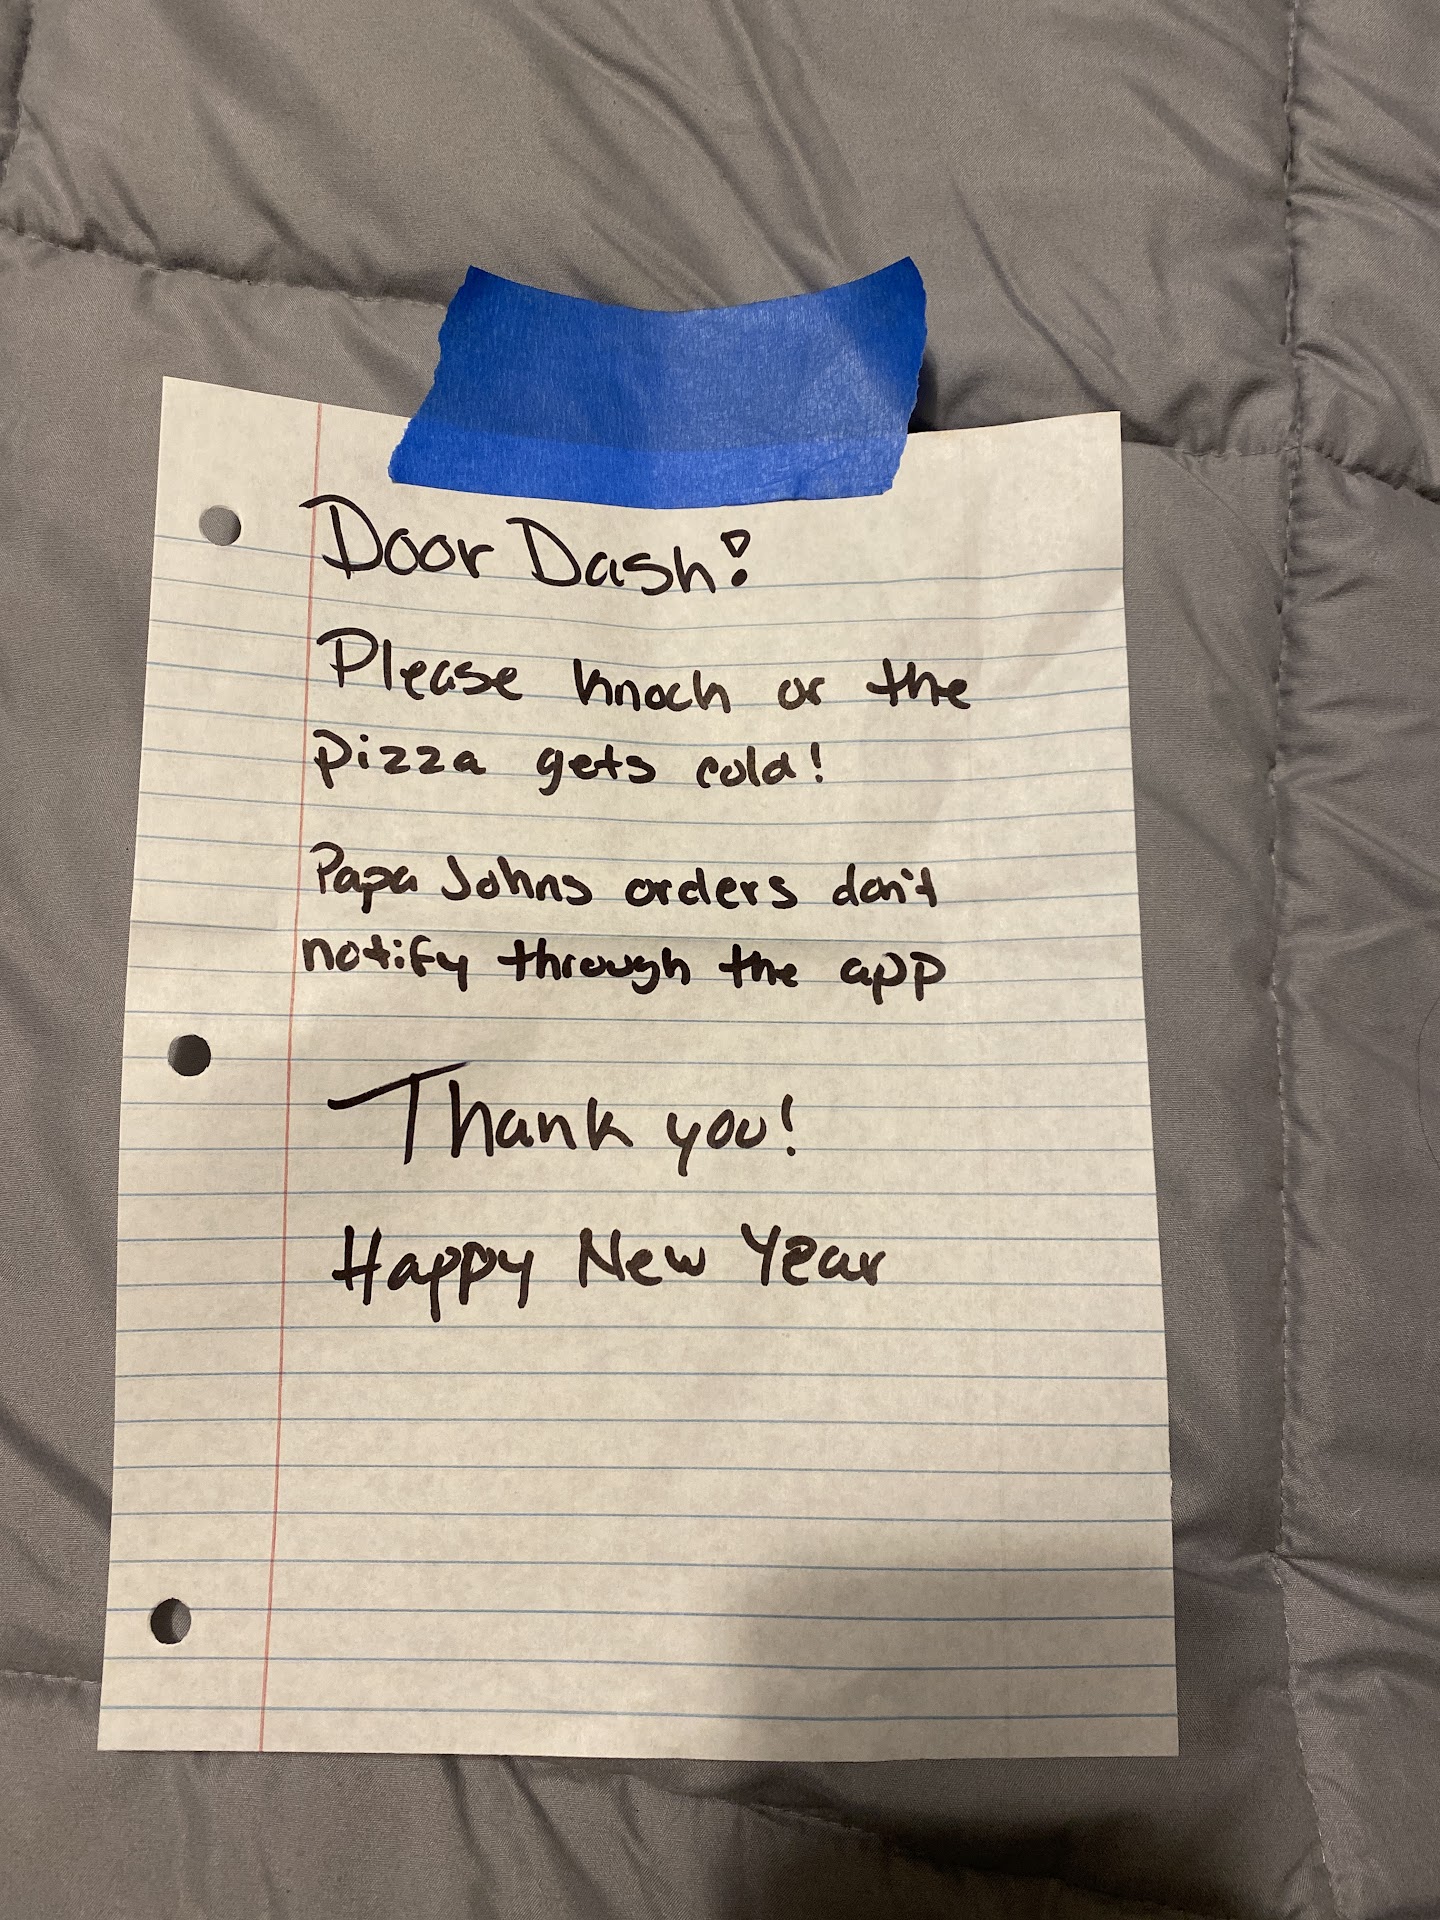 Door Dash!
Please knock or the
pizza gets cold!
Papa Johns orders don't
notify through the app
Thank you!
Happy New Year